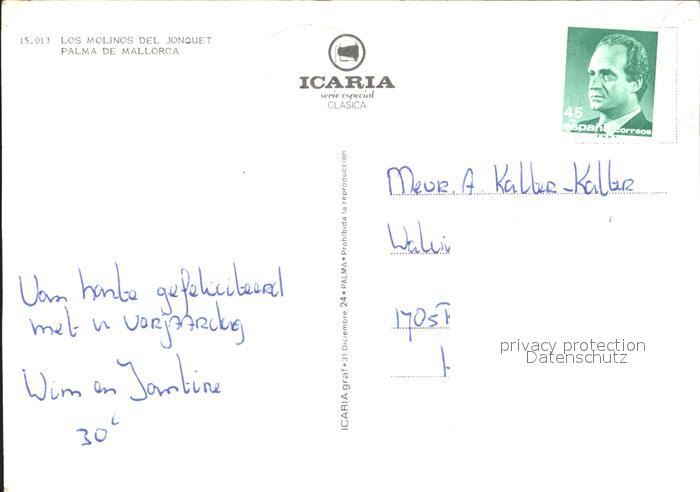 15.013 LOS MOLINOS DEL JONQUET
PALMA DE MALLORCA
ICARIA
serie especial
CLASICA
45
españa correos
ICARIA graf • 31 Diciembre, 24 • PALMA • Prohibida la reproducción
Mevr. A. Kaller-Kaller
1705
privacy protection
Datenschutz
Van harte gefeliciteerd
met 'n verjaardag
Wim en Jantine
30°